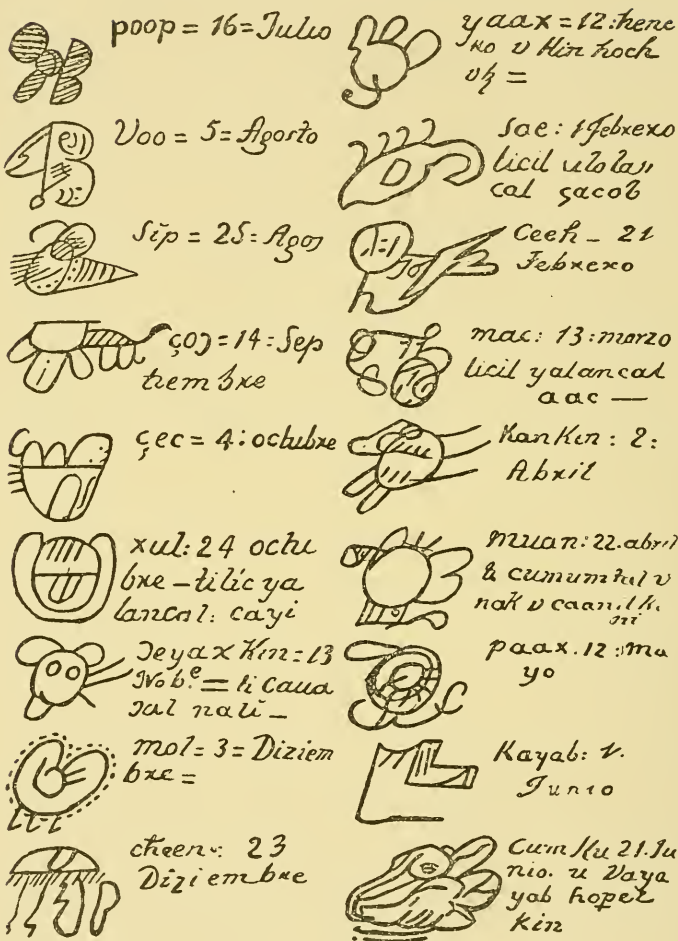 poop = 16 = Julio
Voo = 5 = Agosto
Sip = 25 = Agos
çoɔ = 14 : Sep
tiembre
çec = 4 : octubre
xul : 24 octu
bre – tilic ya
lancal : cayi
Deyax Kin = 13
Nob.e = ti caua
ɔal nali –
mol = 3 = Diziem
bre =
cheen : 23
Diziembre
yaax = 12 : hene
ro v Kin hoch
vɮ =
Sac : 1 Febrero
licil ulolan
cal sacob
Ceeh – 21
Febrero
mac : 13 : marzo
licil yalancal
aac —
KanKin : 2 :
Abril
muan : 22. abril
ti cumumtal v
nak v caanil ki
ni
paax. 12 : ma
yo
Kayab : 1.
Junio
CumKu 21. Ju
nio. u Vaya
yab hopel
Kin